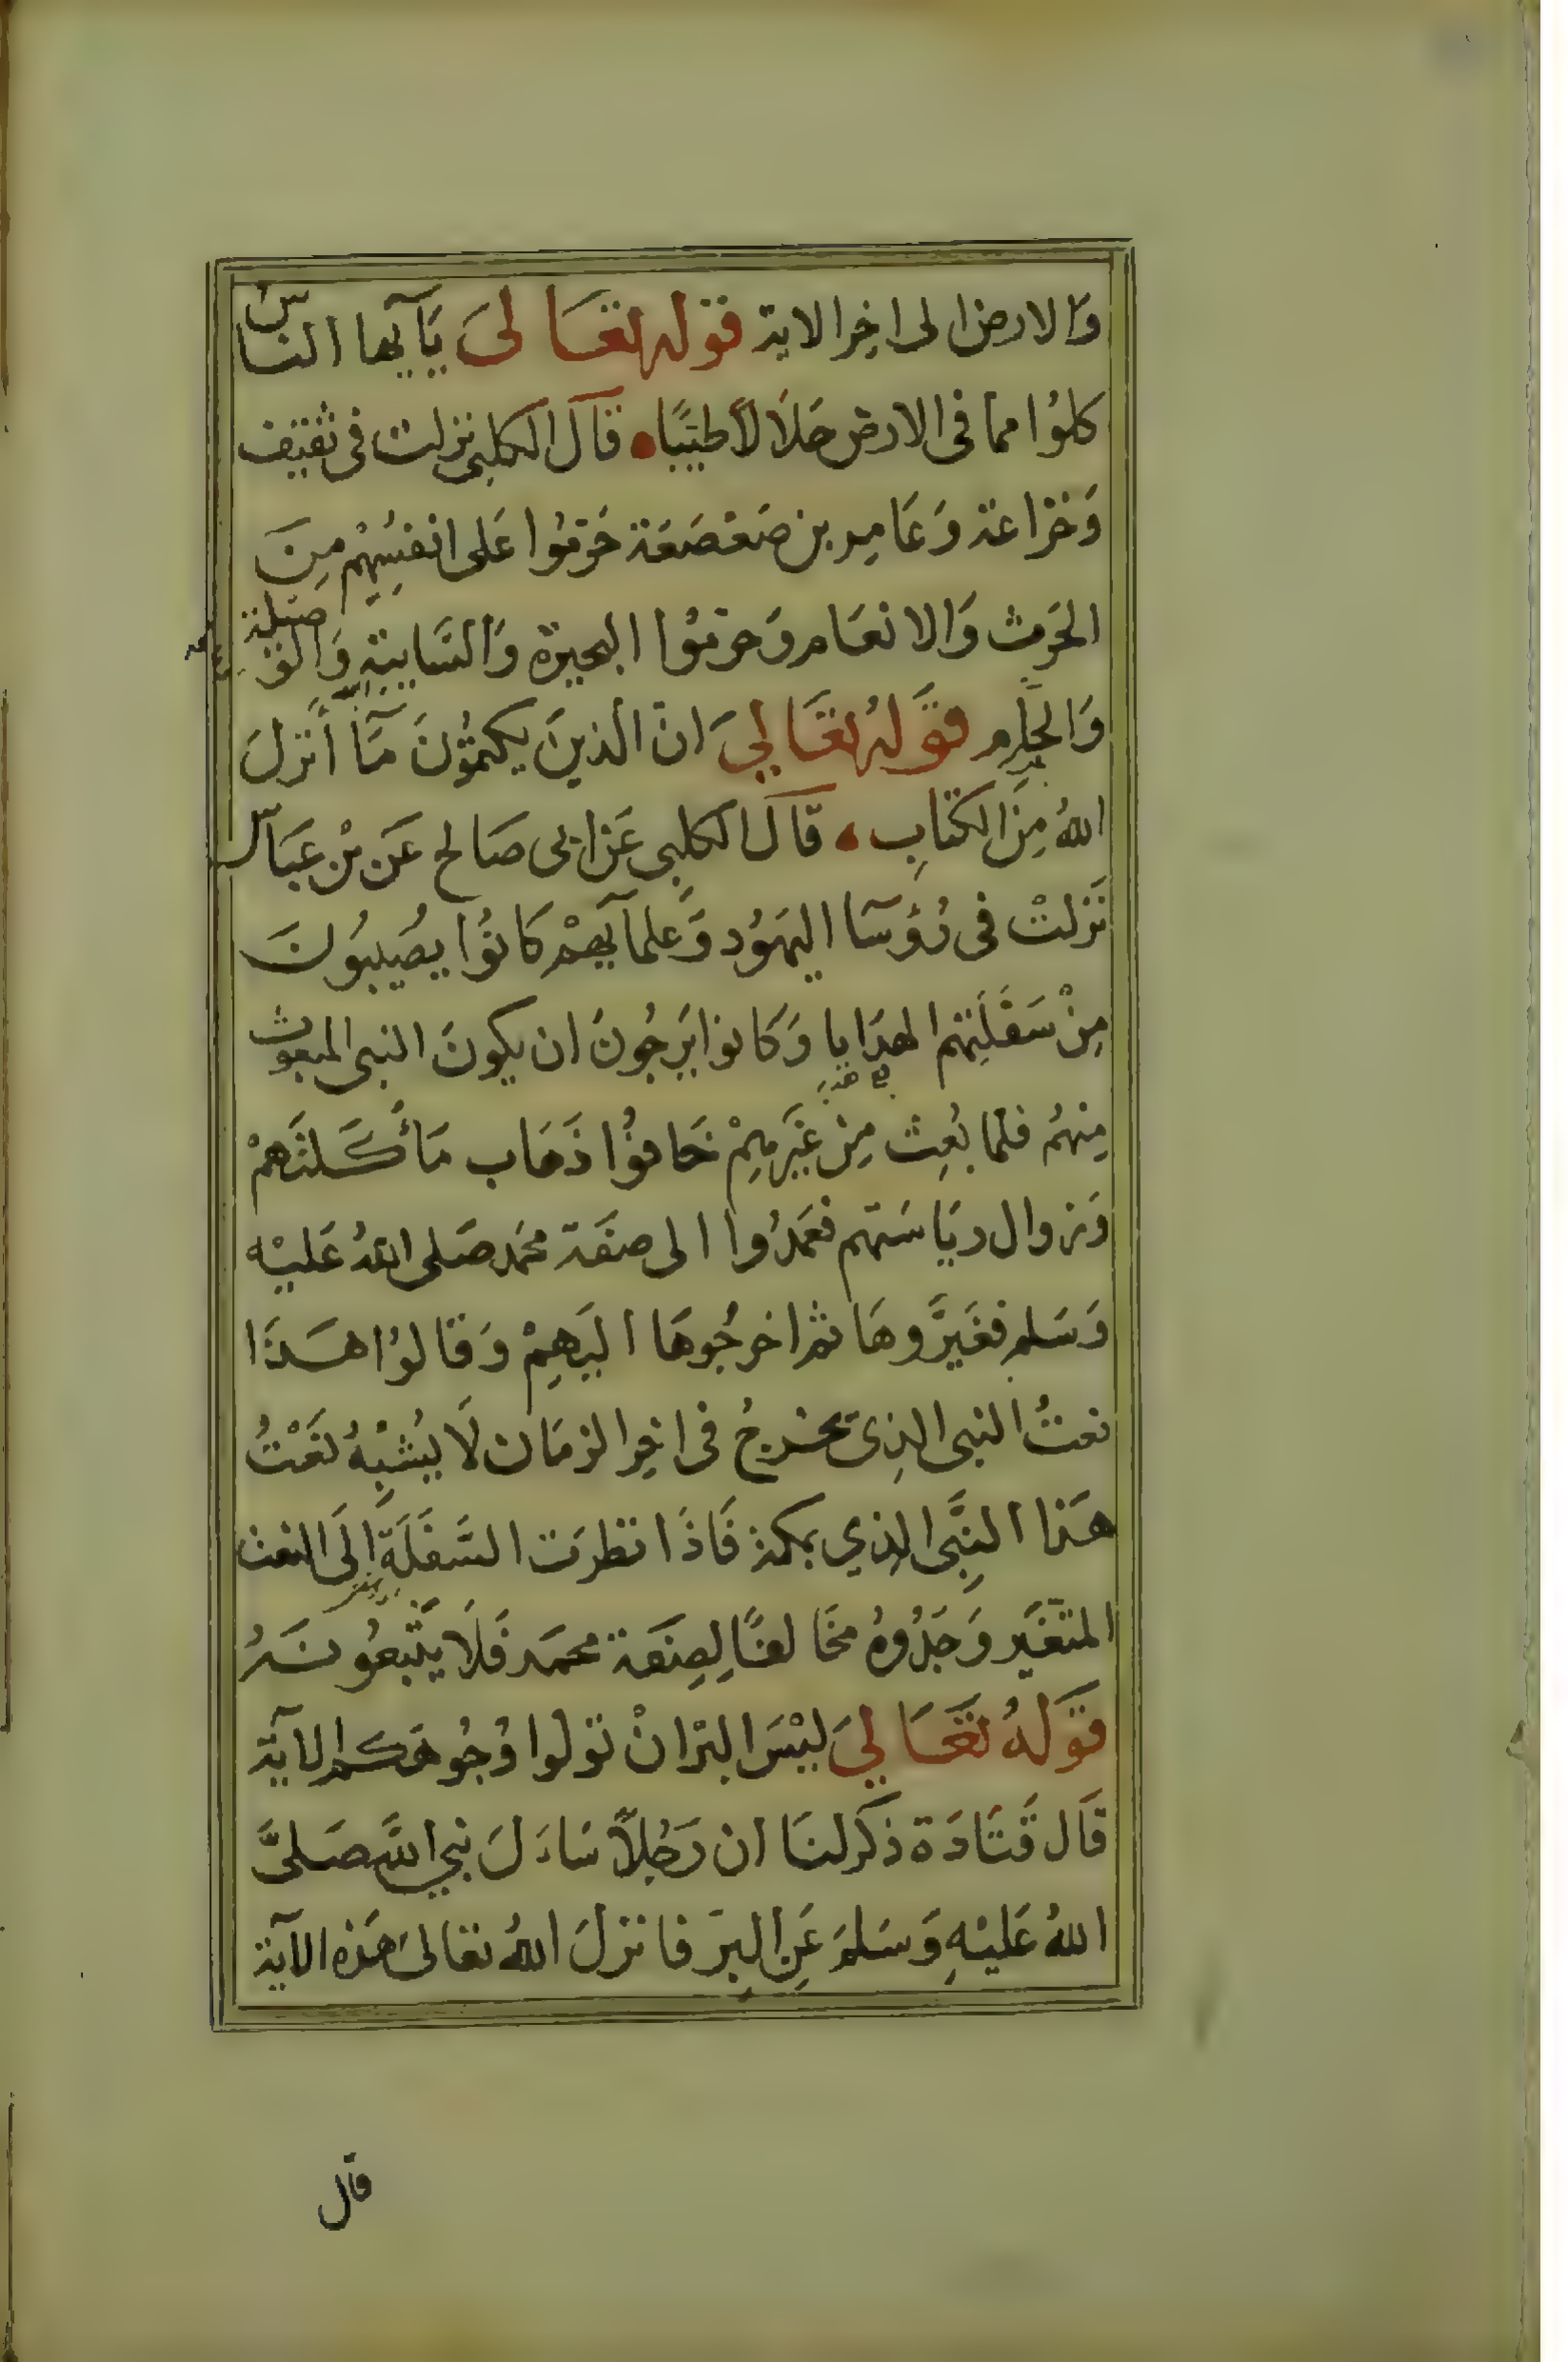 وَالارض الى اخِر الاية قوله تعَالىَ يَآيها الناس
كلوُا مما فى الارض حَلَالاً طيّبًا قَالَ الكلبى نزلت فى ثقيف
وَخزاعة وَعَامِر بن صَعْصَعَة حَرمُوا عَلى انفُسِهِمْ مِنَ
الحَرث وَالانعَام وَحرمُوا البحيرة وَالسَّايبة وَالوَصيلة
وَالحَامِ قوَله تعَالىَ انّ الذينَ يكتمُونَ مَآ أنزلَ
اللهُ مِنَ الكتابِ قَالَ الكلبى عَن ابى صَالح عَن بْن عَبَّاس
نَزلتْ فى رُؤسَآ اليهَوُد وَعلمآيهمْ كَانوُا يصُيبوُنَ
مِنْ سَفَلَتِهم الهدَايا وَكَانوا يَرجُونَ ان يكونَ النبى المبعوث
مِنهُم فلما بُعِث مِن غَيَرهِمْ خَافوُا ذَهَاب مَأكَلتَهمْ
وَزوال ريَاسَتهم فعَمدُوا الى صفَة محَمد صَلى اللهُ عَليْه
وَسَلم فغَيَّروهَا ثم اخرجُوهَا اليَهِمْ وَقالوُا هَذَا
نعتُ النبى الذِى يخرجُ فى اخِر الزمَان لَا يُشبْهُ نَعْتُ
هَذا النَّبِى الذِي بمكة فَاذَا نظرَت السَّفَلَة إلَى النعت
المتغَير وَجَدُوهُ مخَالفًا لِصِفَة محمَد فَلَا يَتَّبعُونَهُ
قوَلهُ تَعَالىَ ليْسَ البرّ انْ تولوا وُجُوهَكم الآية
قَال قَتَادَة ذكر لنَا ان رَجُلاً سَاءَلَ نبي اللَّه صَلىَّ
اللهُ عَليْهِ وَسَلمَ عَنِ البِرّ فانزلَ اللهُ تعالىَ هَذه الآية
قال